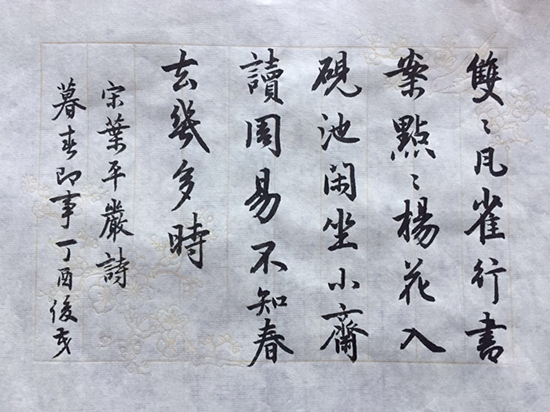 雙〻瓦雀行書
案點〻楊花入
硯池閑坐小齋
讀周易不知春
去幾多時
宋葉平巖詩
暮春即事丁酉俊